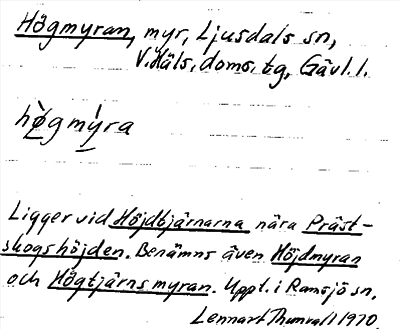 Högmyran, myr, Ljusdals sn,
V. Häls. doms. tg, Gävl. l.
hø̀gmýra
Ligger vid Höjdtjärnarna nära Präst-
skogshöjden. Benämns även Höjdmyran
och Högtjärnsmyran. Uppt. i Ramsjö sn.
Lennart Thunvall 1970.